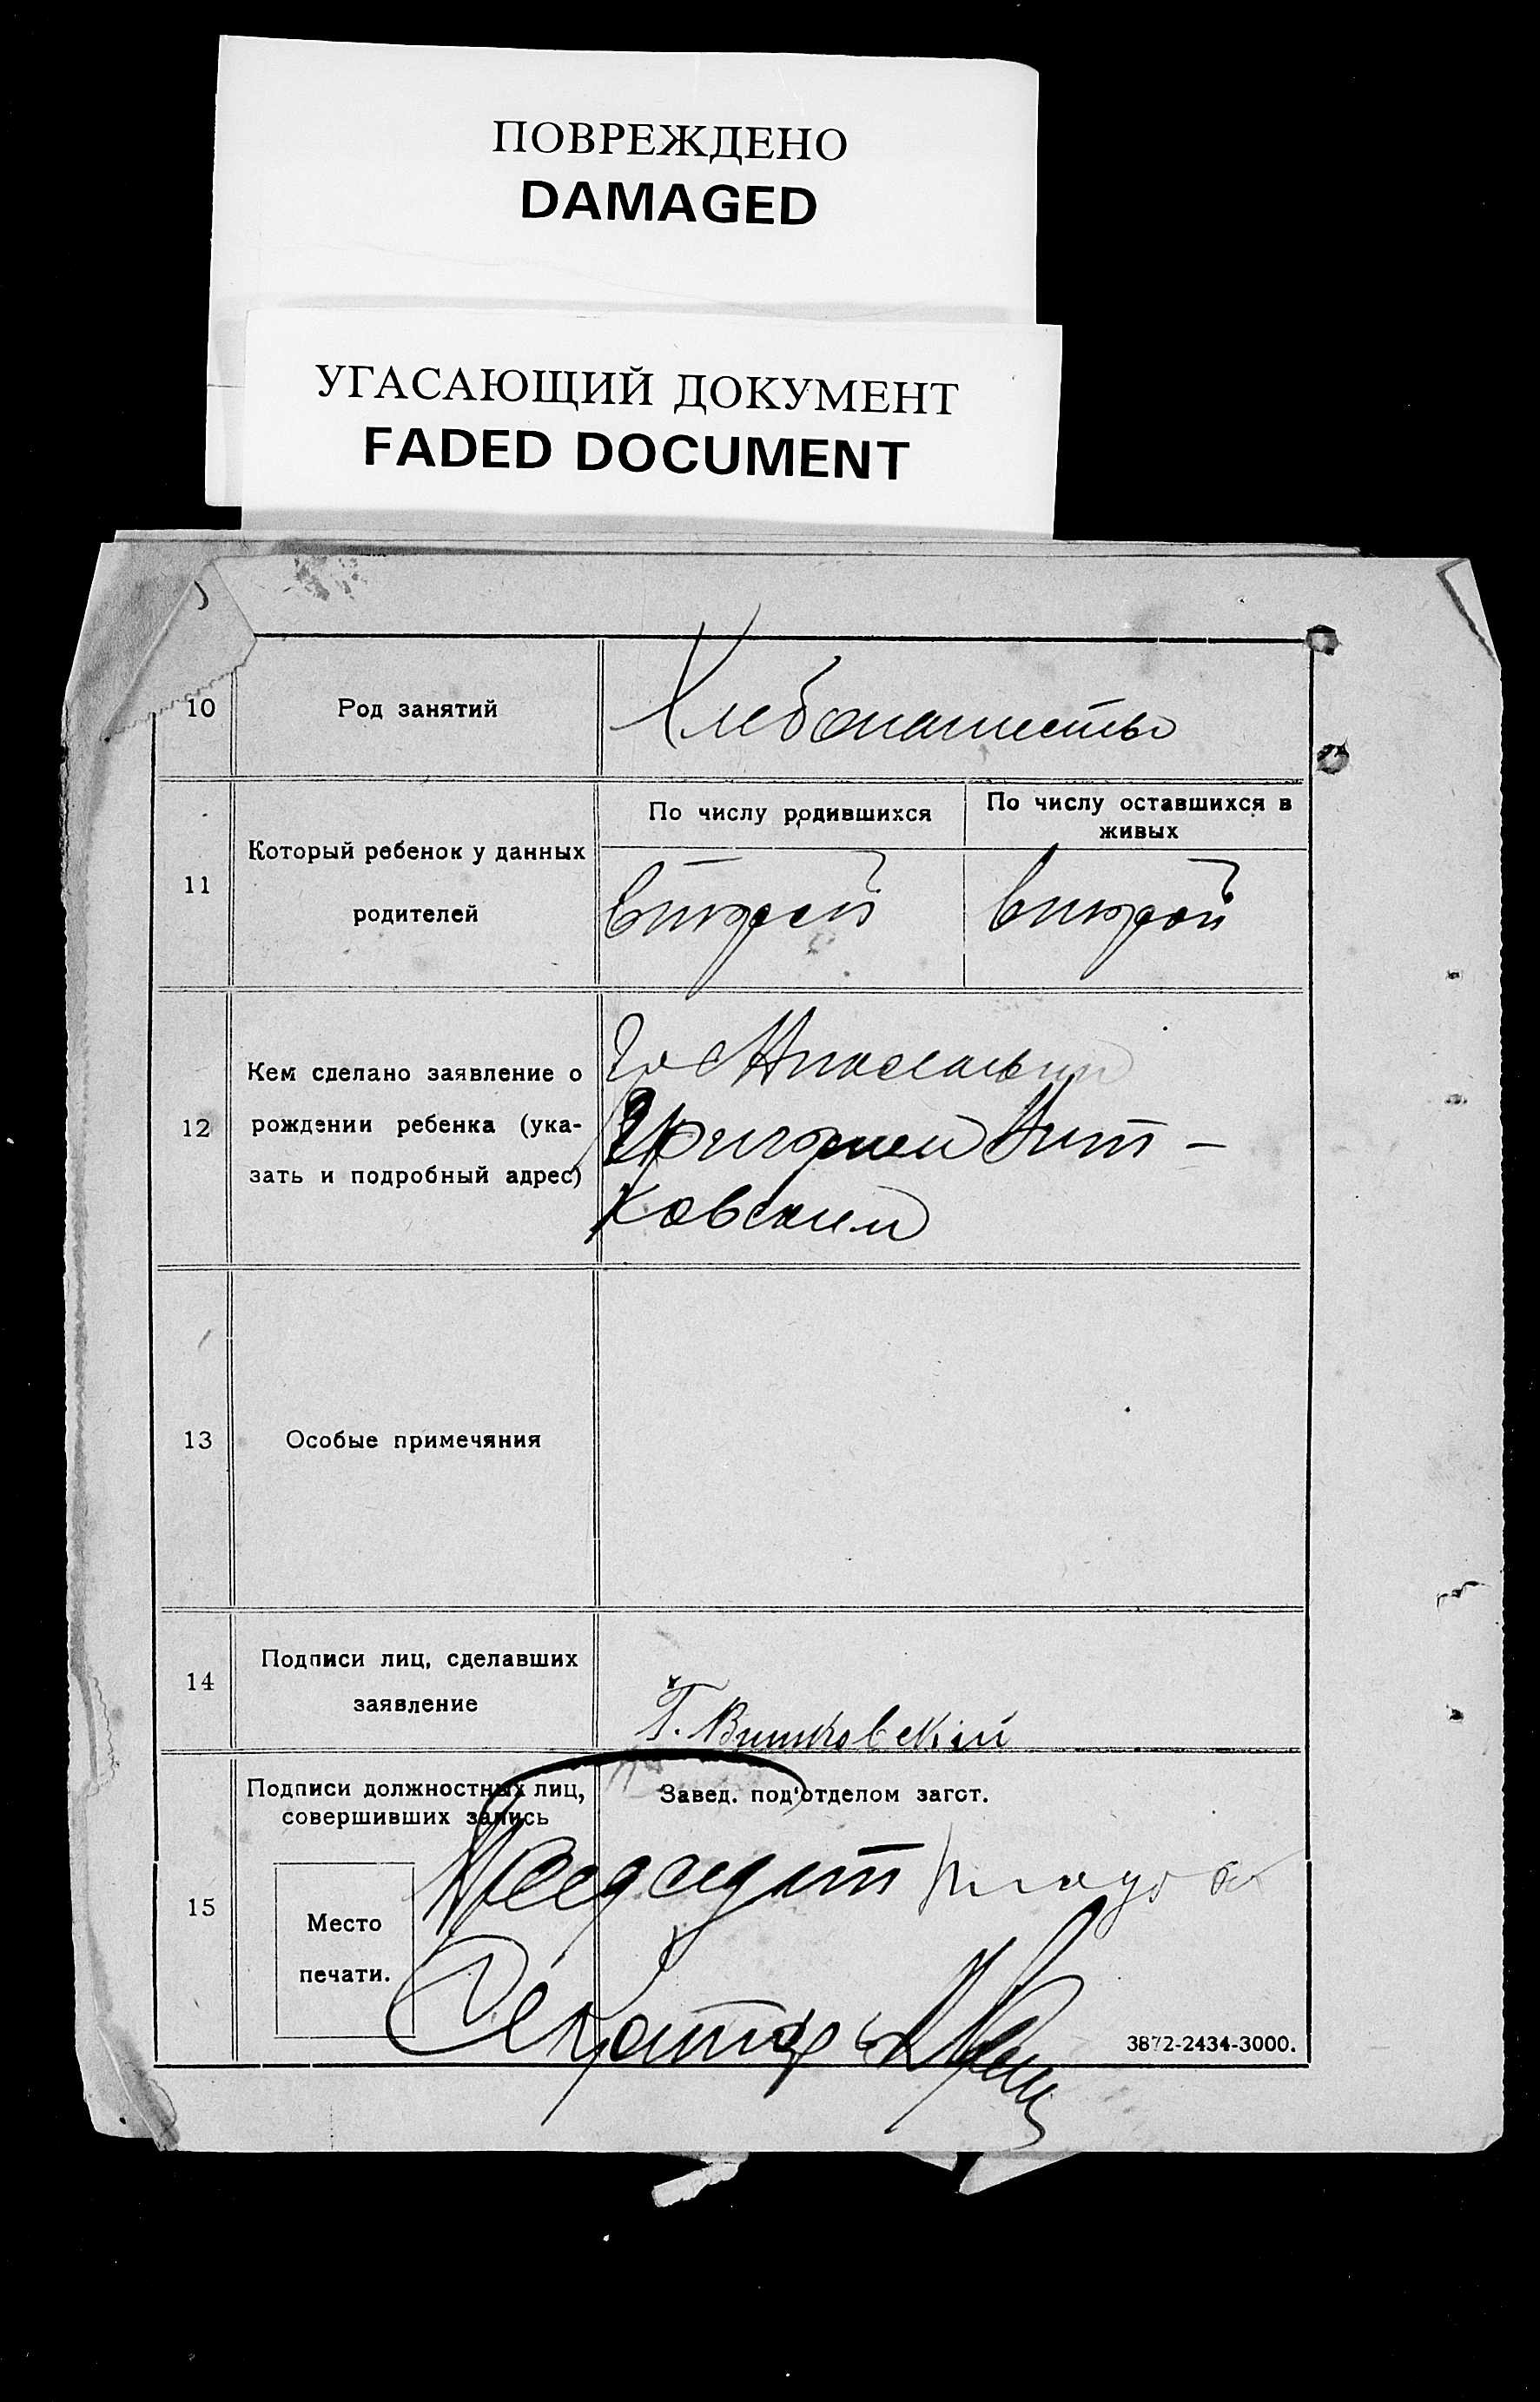 ПОВРЕЖДЕНО
DAMAGED
УГАСАЮЩИЙ ДОКУМЕНТ
FADED DOCUMENT
10
Род занятий
Хлебопашество
11
Который ребенок у данных
родителей
По числу родившихся
По числу оставшихся в
живых
второй
второй
12
Кем сделано заявление о
рождении ребенка (ука-
зать и подробный адрес)
Григорием Вит-
ковским
13
Особые примечяния
14
Подписи лиц, сделавших
заявление
Г. Витковский
15
Подписи должностных лиц,
совершивших запись
Место
печати.
Завед. под'отделом загст.
Председат
Секатарь
3872-2434-3000.